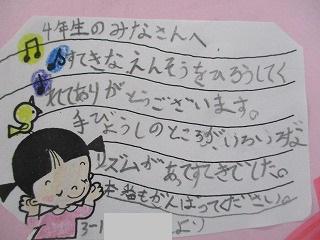 4年生のみなさんへ
すてきなえんそうをひろうしてく
れてありがとうございます。
手びょうしのところがいろいろな
リズムがあってすてきでした。
本番もがんばってください。
3-1 より